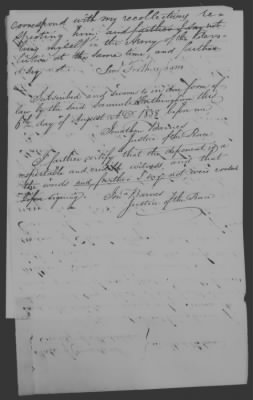 correspond with my recollections re-
specting him; and further I say not
being myself in the Army of the Revo-
lution at the same time, and further
I say not. Saml
Subscribed and sworn to in due form of
law by the said Samuel this
day of August A.D. 1838 before me
Jonathan Barnes
Justice of the Peace
I further certify that the deponent is a
respectable and credible witness, and that
the words and further I say not were erased
before signing. Jona Barnes
Justice of the Peace